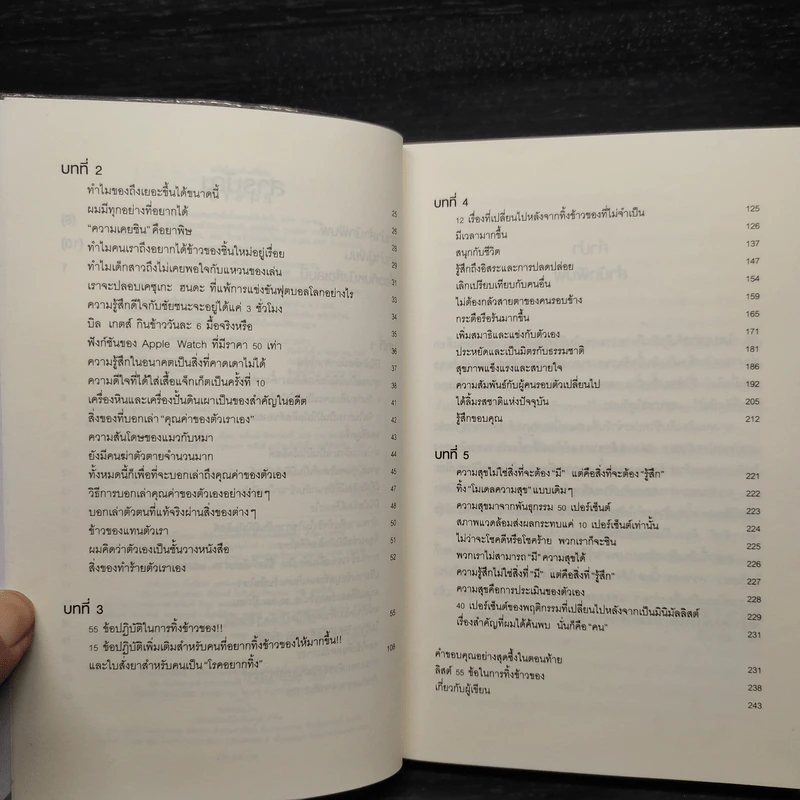 บทที่ 2
ทำไมของถึงเยอะขึ้นได้ขนาดนี้
ผมมีทุกอย่างที่อยากได้ 25
“ความเคยชิน” คือยาพิษ 26
ทำไมคนเราถึงอยากได้ข้าวของชิ้นใหม่อยู่เรื่อย 28
ทำไมเด็กสาวถึงไม่เคยพอใจกับแหวนของเล่น 29
เราจะปลอบเคซุเกะ ฮนดะ ที่แพ้การแข่งขันฟุตบอลโลกอย่างไร 31
ความรู้สึกดีใจกับชัยชนะจะอยู่ได้แค่ 3 ชั่วโมง 33
บิล เกตส์ กินข้าววันละ 6 มื้อจริงหรือ 34
ฟังก์ชันของ Apple Watch ที่มีราคา 50 เท่า 35
ความรู้สึกในอนาคตเป็นสิ่งที่คาดเดาไม่ได้ 36
ความดีใจที่ได้ใส่เสื้อแจ็กเก็ตเป็นครั้งที่ 10 37
เครื่องหินและเครื่องปั้นดินเผาเป็นของสำคัญในอดีต 38
สิ่งของที่บอกเล่า “คุณค่าของตัวเราเอง” 41
ความสันโดษของแมวกับหมา 42
ยังมีคนฆ่าตัวตายจำนวนมาก 43
ทั้งหมดนี้ก็เพื่อที่จะบอกเล่าถึงคุณค่าของตัวเอง 44
วิธีการบอกเล่าคุณค่าของตัวเองอย่างง่ายๆ 45
บอกเล่าตัวตนที่แท้จริงผ่านสิ่งของต่างๆ 47
ข้าวของแทนตัวเรา 48
ผมคิดว่าตัวเองเป็นชั้นวางหนังสือ 50
สิ่งของทำร้ายตัวเราเอง 51
52
บทที่ 3
55 ข้อปฏิบัติในการทิ้งข้าวของ!! 55
15 ข้อปฏิบัติเพิ่มเติมสำหรับคนที่อยากทิ้งข้าวของให้มากขึ้น!!
และใบสั่งยาสำหรับคนเป็น “โรคอยากทิ้ง” 108
บทที่ 4
12 เรื่องที่เปลี่ยนไปหลังจากทิ้งข้าวของที่ไม่จำเป็น 125
มีเวลามากขึ้น 126
สนุกกับชีวิต 137
รู้สึกถึงอิสระและการปลดปล่อย 147
เลิกเปรียบเทียบกับคนอื่น 154
ไม่ต้องกลัวสายตาของคนรอบข้าง 159
กระตือรือร้นมากขึ้น 165
เพิ่มสมาธิและแข่งกับตัวเอง 171
ประหยัดและเป็นมิตรกับธรรมชาติ 181
สุขภาพแข็งแรงและสบายใจ 186
ความสัมพันธ์กับผู้คนรอบตัวเปลี่ยนไป 192
ได้ลิ้มรสชาติแห่งปัจจุบัน 205
รู้สึกขอบคุณ 212
บทที่ 5
ความสุขไม่ใช่สิ่งที่จะต้อง “มี” แต่คือสิ่งที่จะต้อง “รู้สึก” 221
ทิ้ง “โมเดลความสุข” แบบเดิมๆ 222
ความสุขมาจากพันธุกรรม 50 เปอร์เซ็นต์ 223
สภาพแวดล้อมส่งผลกระทบแค่ 10 เปอร์เซ็นต์เท่านั้น 224
ไม่ว่าจะโชคดีหรือโชคร้าย พวกเราก็จะชิน 225
พวกเราไม่สามารถ “มี” ความสุขได้ 226
ความรู้สึกไม่ใช่สิ่งที่ “มี” แต่คือสิ่งที่ “รู้สึก” 227
ความสุขคือการประเมินของตัวเอง 228
40 เปอร์เซ็นต์ของพฤติกรรมที่เปลี่ยนไปหลังจากเป็นมินิมัลลิสต์ 229
เรื่องสำคัญที่ผมได้ค้นพบ นั่นก็คือ “คน” 231
คำขอบคุณอย่างสุดซึ้งในตอนท้าย 231
ลิสต์ 55 ข้อในการทิ้งข้าวของ 238
เกี่ยวกับผู้เขียน 243